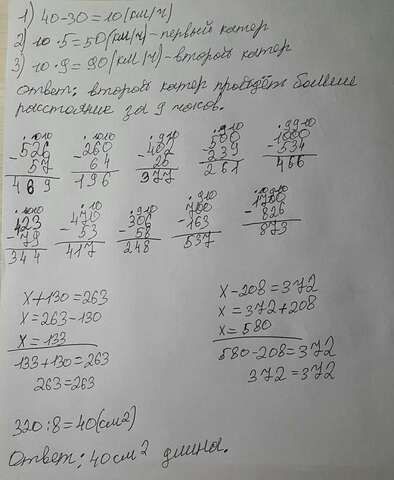 1) 40-30=10(км/ч)
2) 10·5=50(км/ч)-первый катер
3) 10·9=90(км/ч)-второй катер
Ответ: второй катер пройдёт больше
расстояние за 9 часов.
526 - 57 = 469
260 - 64 = 196
402 - 25 = 377
500 - 239 = 261
1000 - 534 = 466
423 - 79 = 344
470 - 53 = 417
306 - 58 = 248
700 - 163 = 537
1700 - 826 = 873
x+130=263
x=263-130
x=133
133+130=263
263=263
x-208=372
x=372+208
x=580
580-208=372
372=372
320:8=40(см²)
Ответ: 40см² длина.